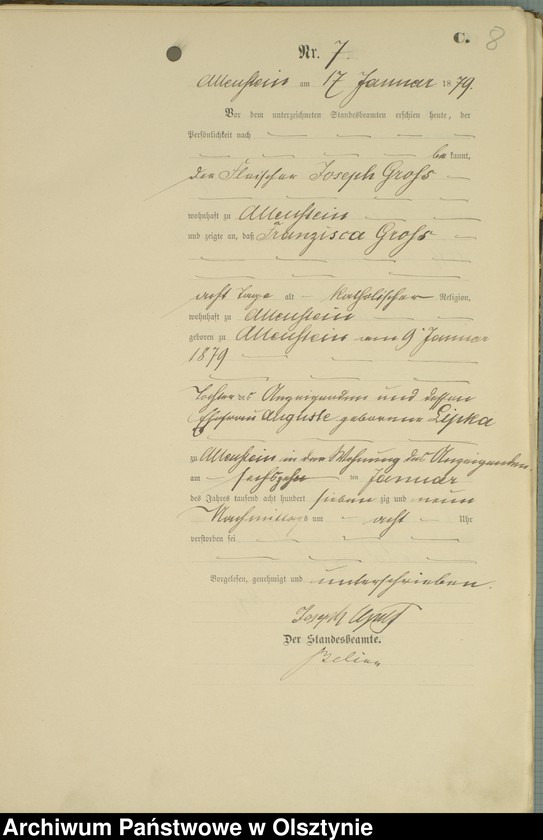 C. 8
Nr. 7.
Allenstein am 17 Januar 1879.
Vor dem unterzeichneten Standesbeamten erschien heute, der
Persönlichkeit nach
be kannt,
der Fleischer Joseph Groß
wohnhaft zu Allenstein
und zeigte an, daß Franzisca Groß
acht Tage alt katholischer Religion,
wohnhaft zu Allenstein
geboren zu Allenstein am 9 Januar
1879
Tochter des Anzeigenden und dessen
Ehefrau Auguste geborene Lipka
zu Allenstein in der Wohnung des Anzeigenden
am sechszehn ten Januar
des Jahres tausend acht hundert sieben zig und neun
Nachmittags um acht Uhr
verstorben sei
Vorgelesen, genehmigt und unterschrieben.
Joseph Groß
Der Standesbeamte.
Archiwum Państwowe w Olsztynie